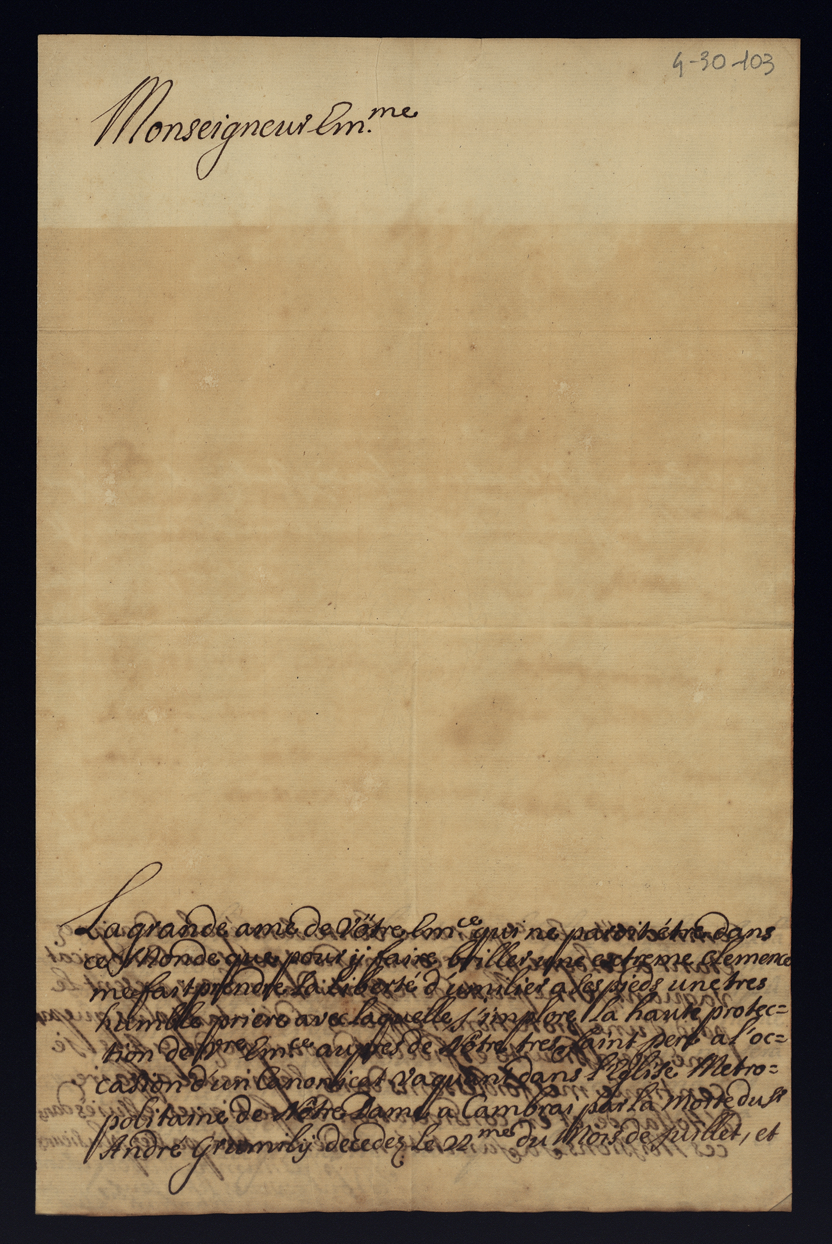 4-30-103
Monseigneur Em.me
La grande ame de Vôtre Em.ce qui ne paroit étre dans
ce Monde que pour ÿ faire briller une extreme clemence
me fait prendre la liberté d'umilier a ses pieds une tres
humble priere avec laquelle j'implore la haute protec=
tion de V.re Em.ce aupres de Nôtre tres Saint pere a l'oc=
casion d'un Canonicat vaquant dans l'Eglise Metro=
politaine de Nôtre Dame a Cambrai par la Morte du Sr
André Grumily decedez le 22.me du Mois de Juillet, et